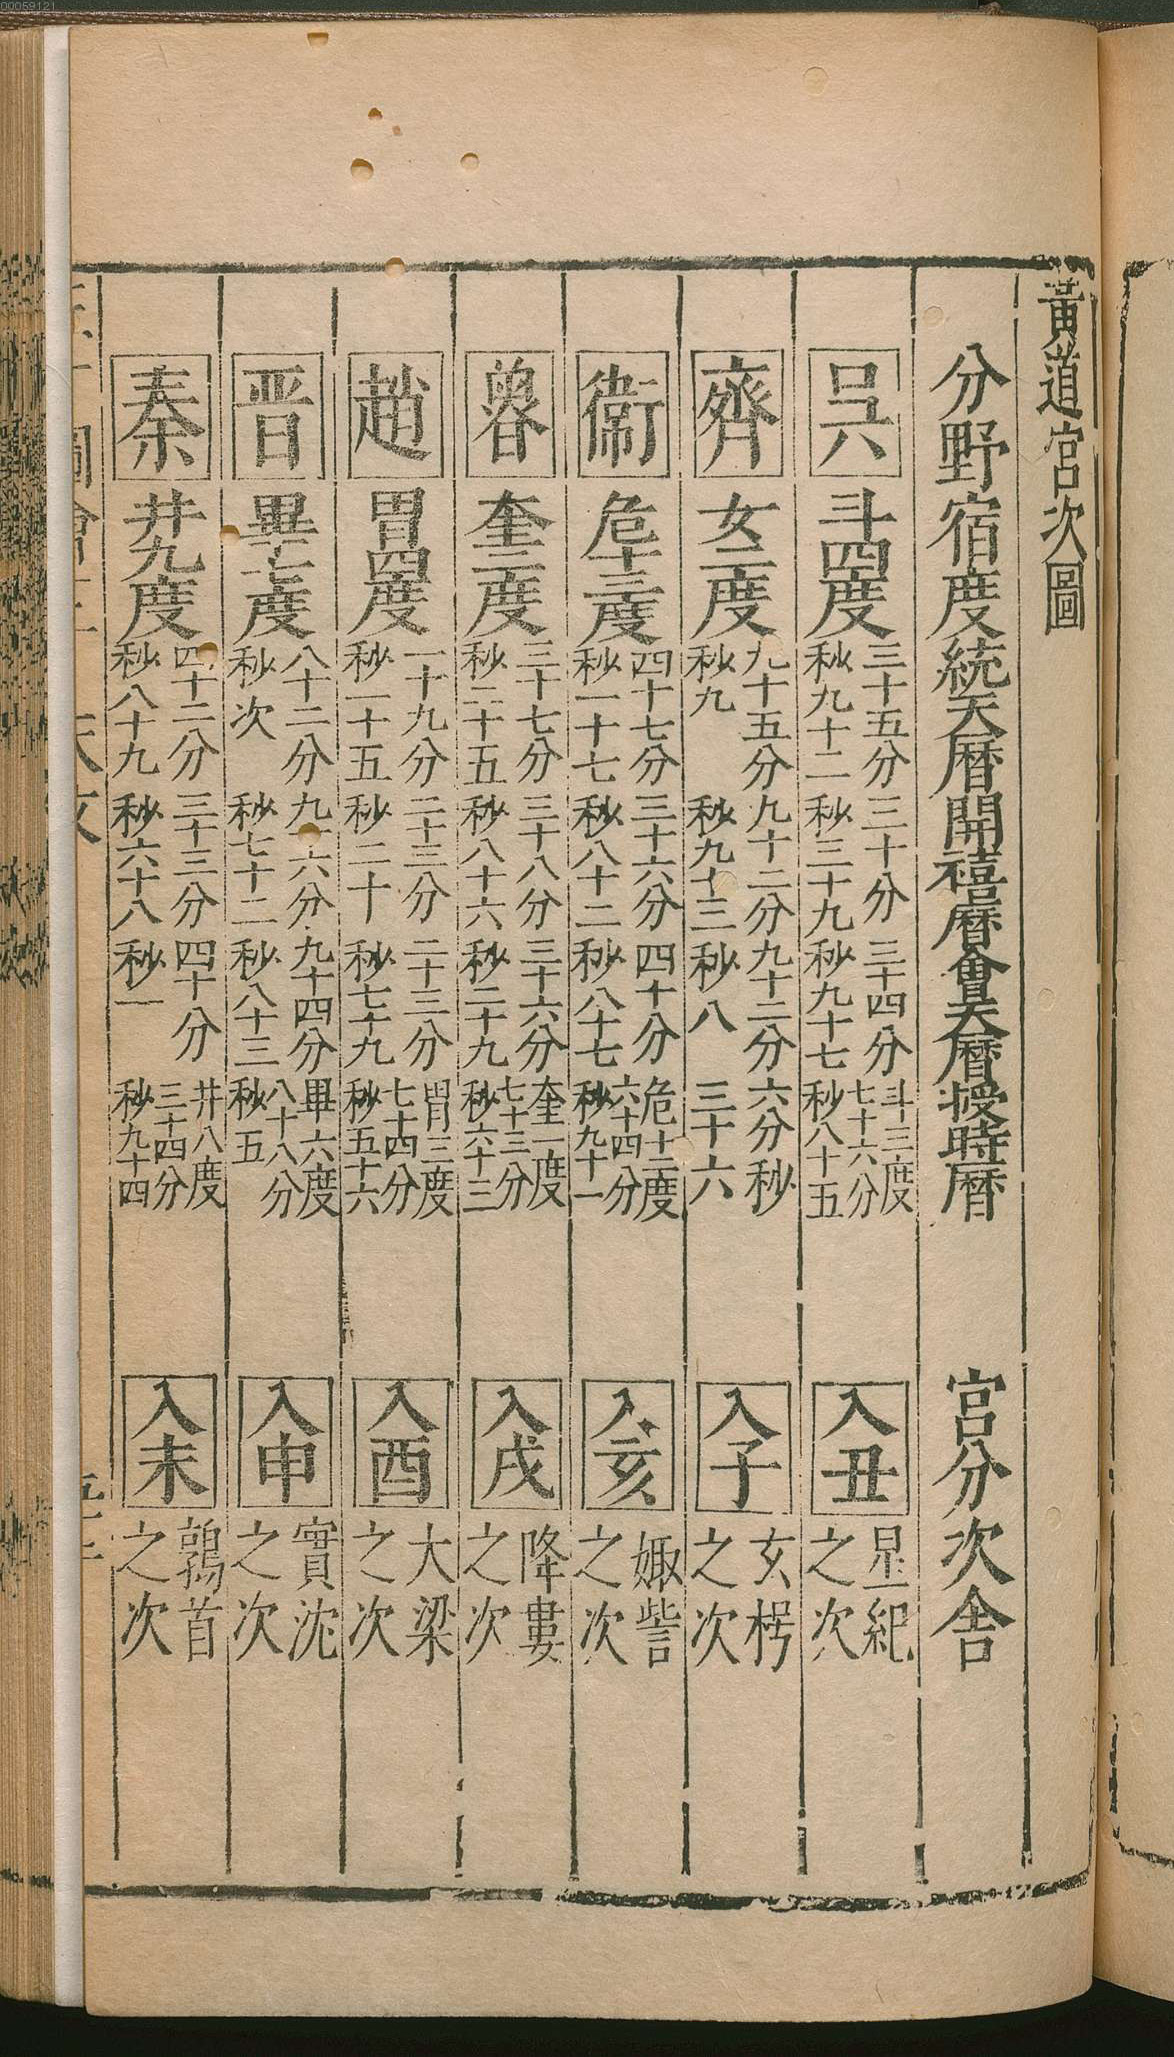 00059121
黃道宮次圖
分野宿度統天曆開禧曆會天曆授時曆 宮分次舍
吳 斗四度 三十五分秒九十二 三十分秒三十九 三十四分秒九十七 斗三度七十六分秒八十五 入丑 星紀之次
齊 女二度 九十五分秒九 九十二分秒九十三 九十二分秒八 六分秒三十六 入子 玄枵之次
衞 危十三度 四十七分秒一十七 三十六分秒八十二 四十分秒八十七 危十二度六十四分秒九十一 入亥 娵訾之次
魯 奎三度 三十七分秒二十五 三十八分秒八十六 三十六分秒二十九 奎一度七十三分秒六十三 入戌 降婁之次
趙 胃四度 一十九分秒一十五 二十三分秒二十 二十三分秒七十九 胃三度七十四分秒五十六 入酉 大梁之次
晋 畢七度 八十二分秒次 九十六分秒七十二 九十四分秒八十三 畢六度八十八分秒五 入申 實沈之次
秦 井九度 四十二分秒八十九 三十三分秒六十八 四十分秒一 井八度三十四分秒九十四 入未 鶉首之次